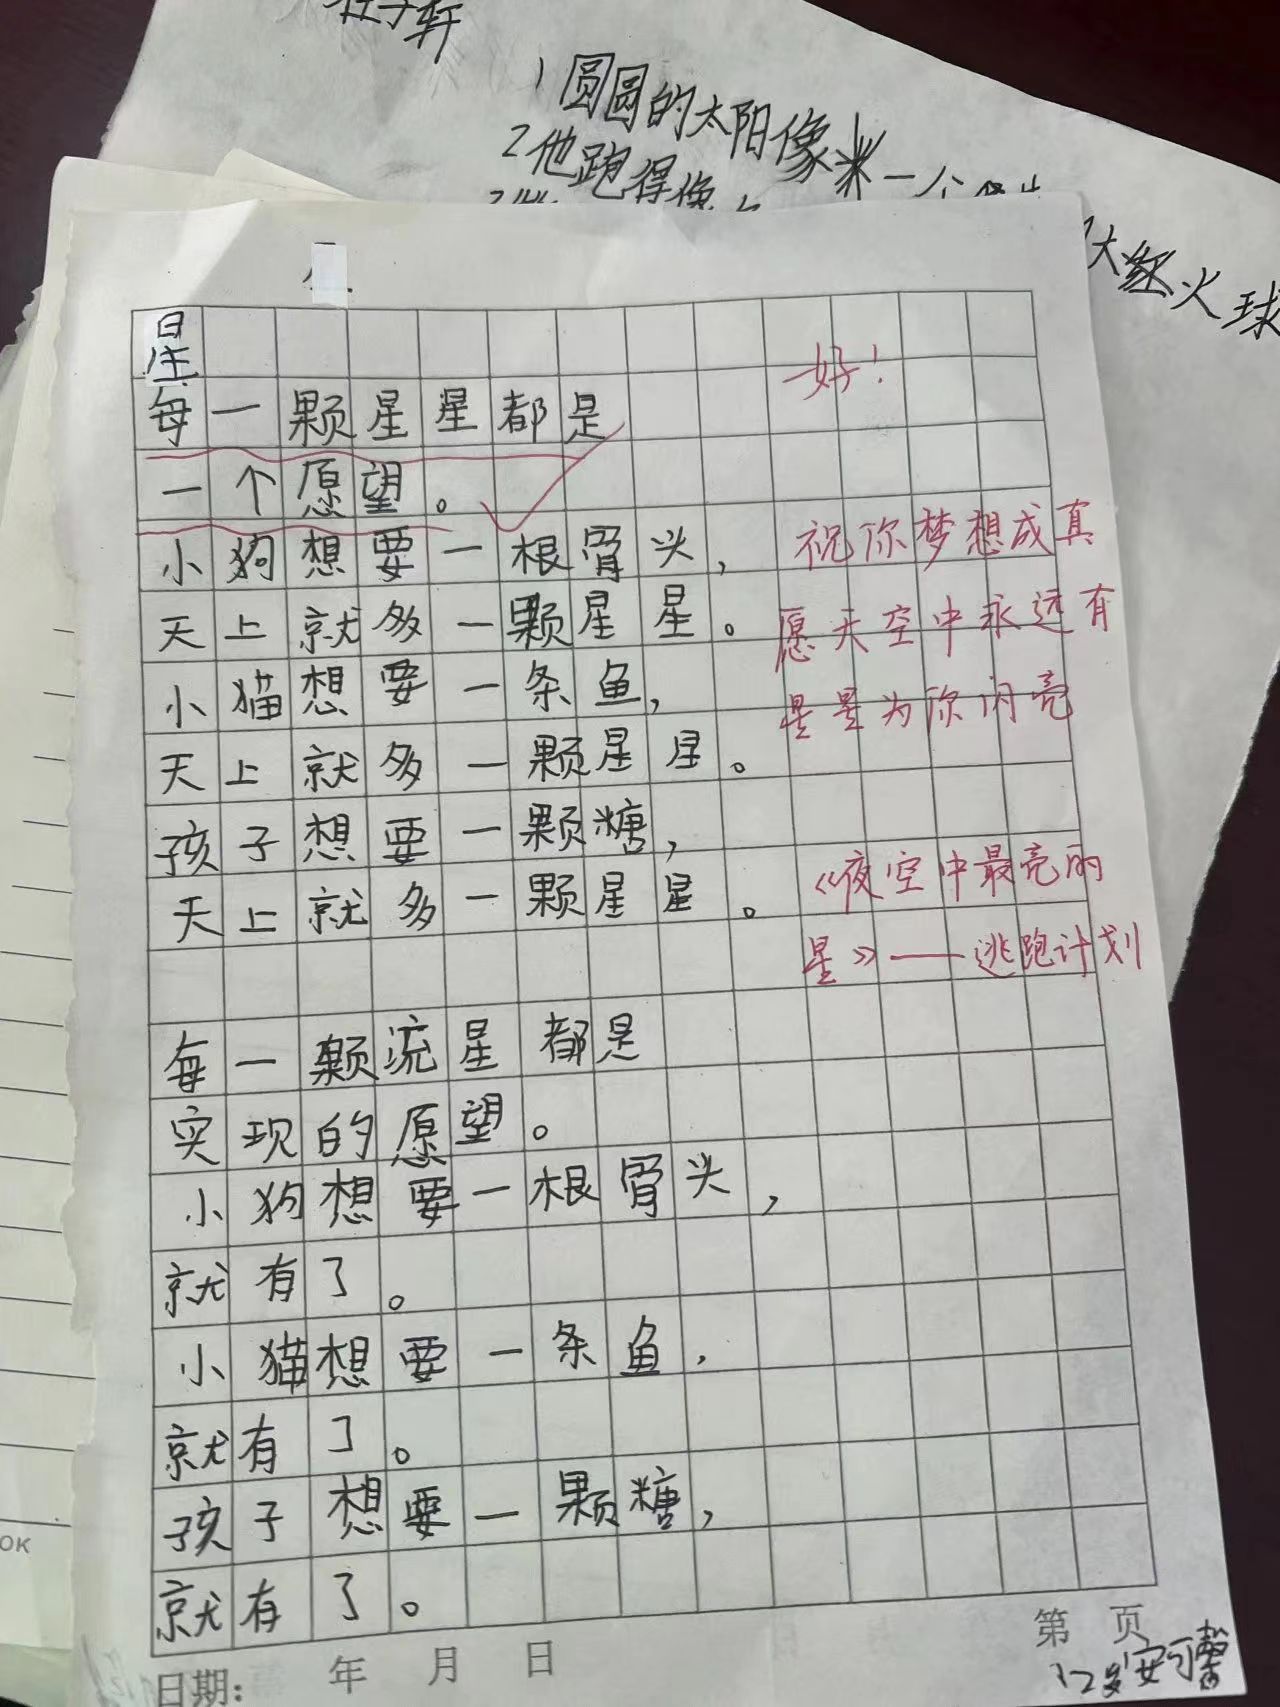 1圆圆的太阳像一个
大红火球
2他跑得像
星
每一颗星星都是
一个愿望。
小狗想要一根骨头，
天上就多一颗星星。
小猫想要一条鱼，
天上就多一颗星星。
孩子想要一颗糖，
天上就多一颗星星。
每一颗流星都是
实现的愿望。
小狗想要一根骨头，
就有了。
小猫想要一条鱼，
就有了。
孩子想要一颗糖，
就有了。
好！
祝你梦想成真
愿天空中永远有
星星为你闪亮
《夜空中最亮的
星》——逃跑计划
第 页
日期： 年 月 日
12岁安可馨
OK